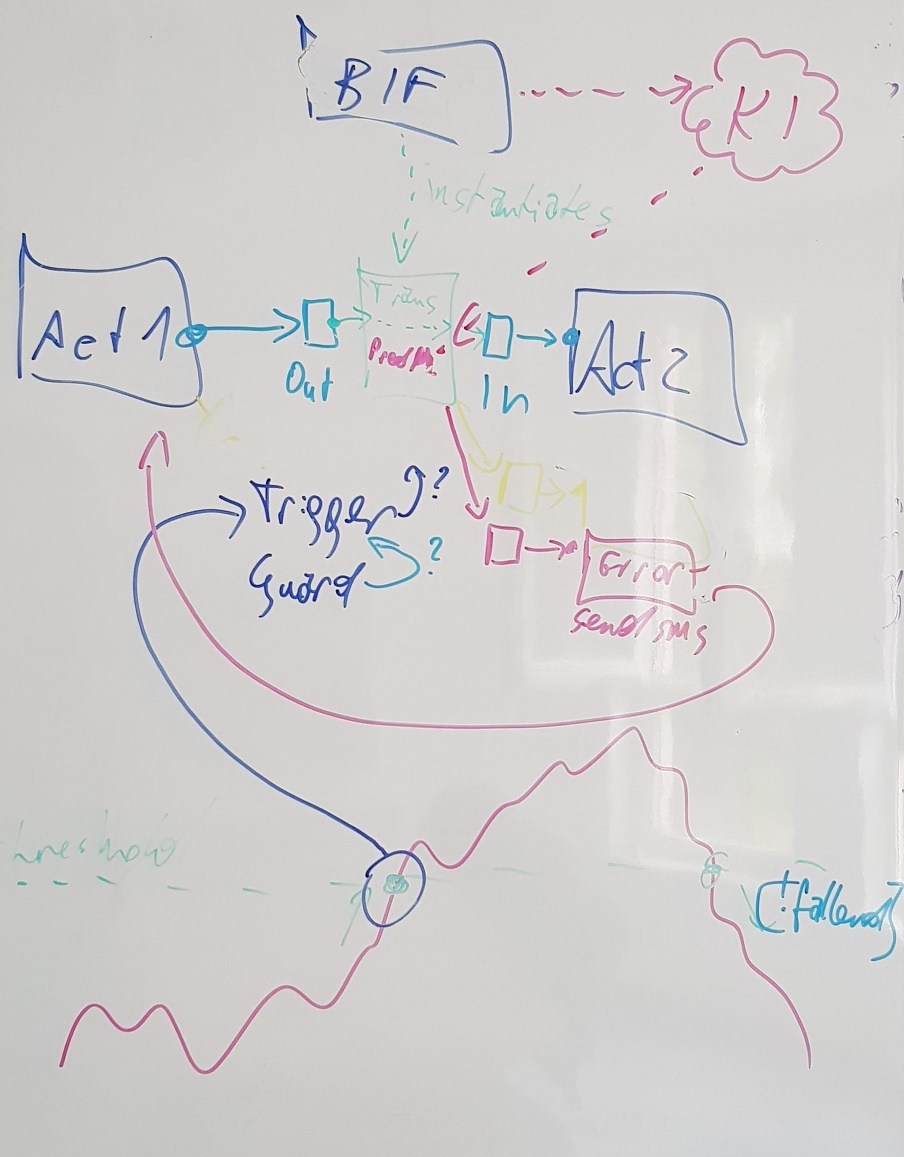 BIF
KI
instantiates
Act 1
Out
Trans
In
Act 2
Trigger ?
Guard ?
Error
send sms
threshold
(!fallend)